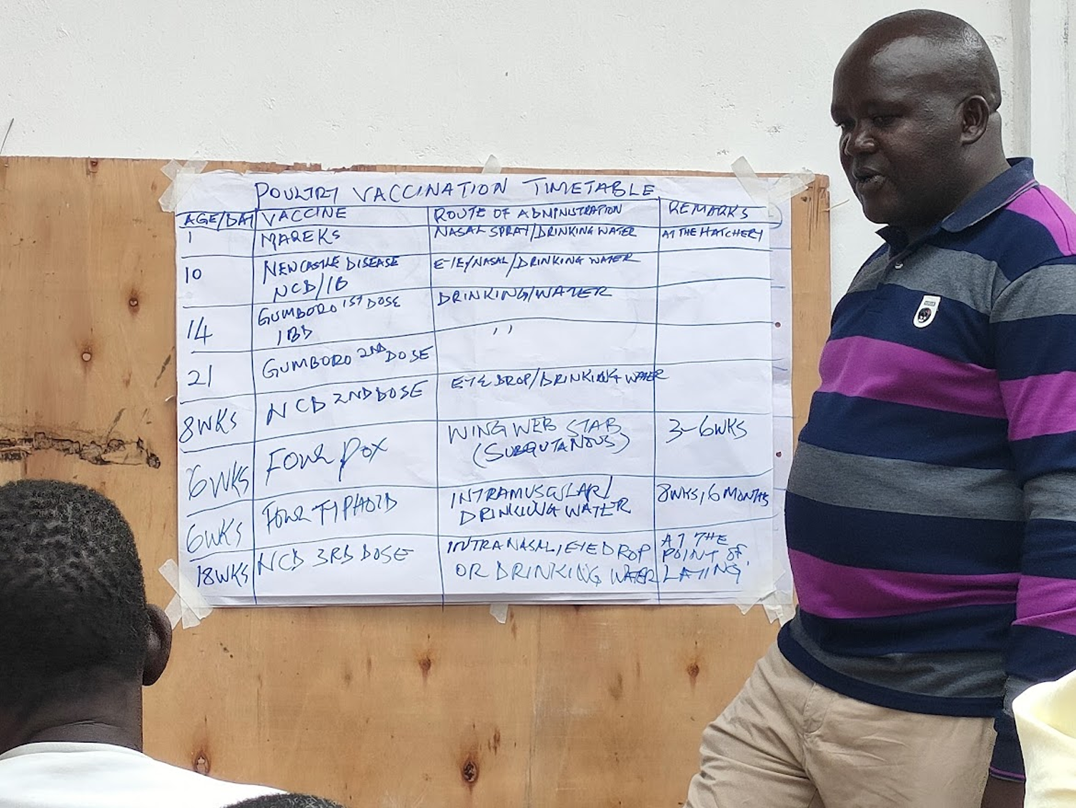 POULTRY VACCINATION TIMETABLE
AGE/DAY VACCINE ROUTE OF ADMINISTRATION REMARKS
1 MAREKS NASAL SPRAY/DRINKING WATER AT THE HATCHERY
10 NEWCASTLE DISEASE EYE/NASAL/DRINKING WATER
NCD/IB
14 GUMBORO 1ST DOSE DRINKING/WATER
IBD
21 GUMBORO 2ND DOSE ''
8WKS NCD 2ND DOSE EYE DROP/DRINKING WATER
6WKS FOWL POX WING WEB STAB 3-6WKS
(SUBQUTANOUS)
6WKS FOWL TYPHOID INTRAMUSCULAR/ 8WKS, 6 MONTHS
DRINKING WATER
18WKS NCD 3RD DOSE INTRANASAL, EYE DROP AT THE
OR DRINKING WATER POINT OF
LAYING